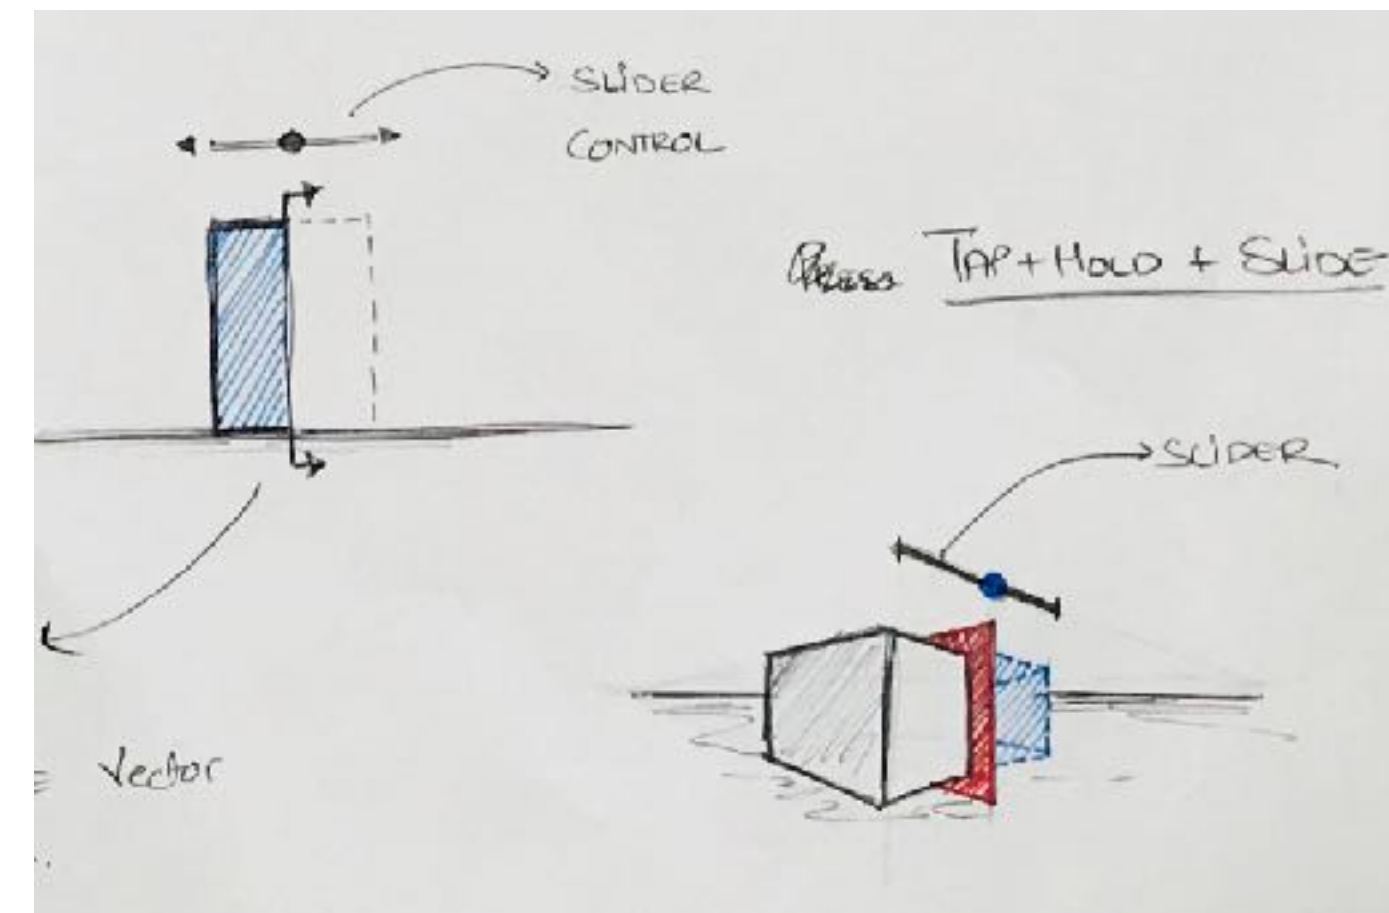 SLIDER
CONTROL
Press TAP + HOLD + SLIDE
SLIDER
= Vector